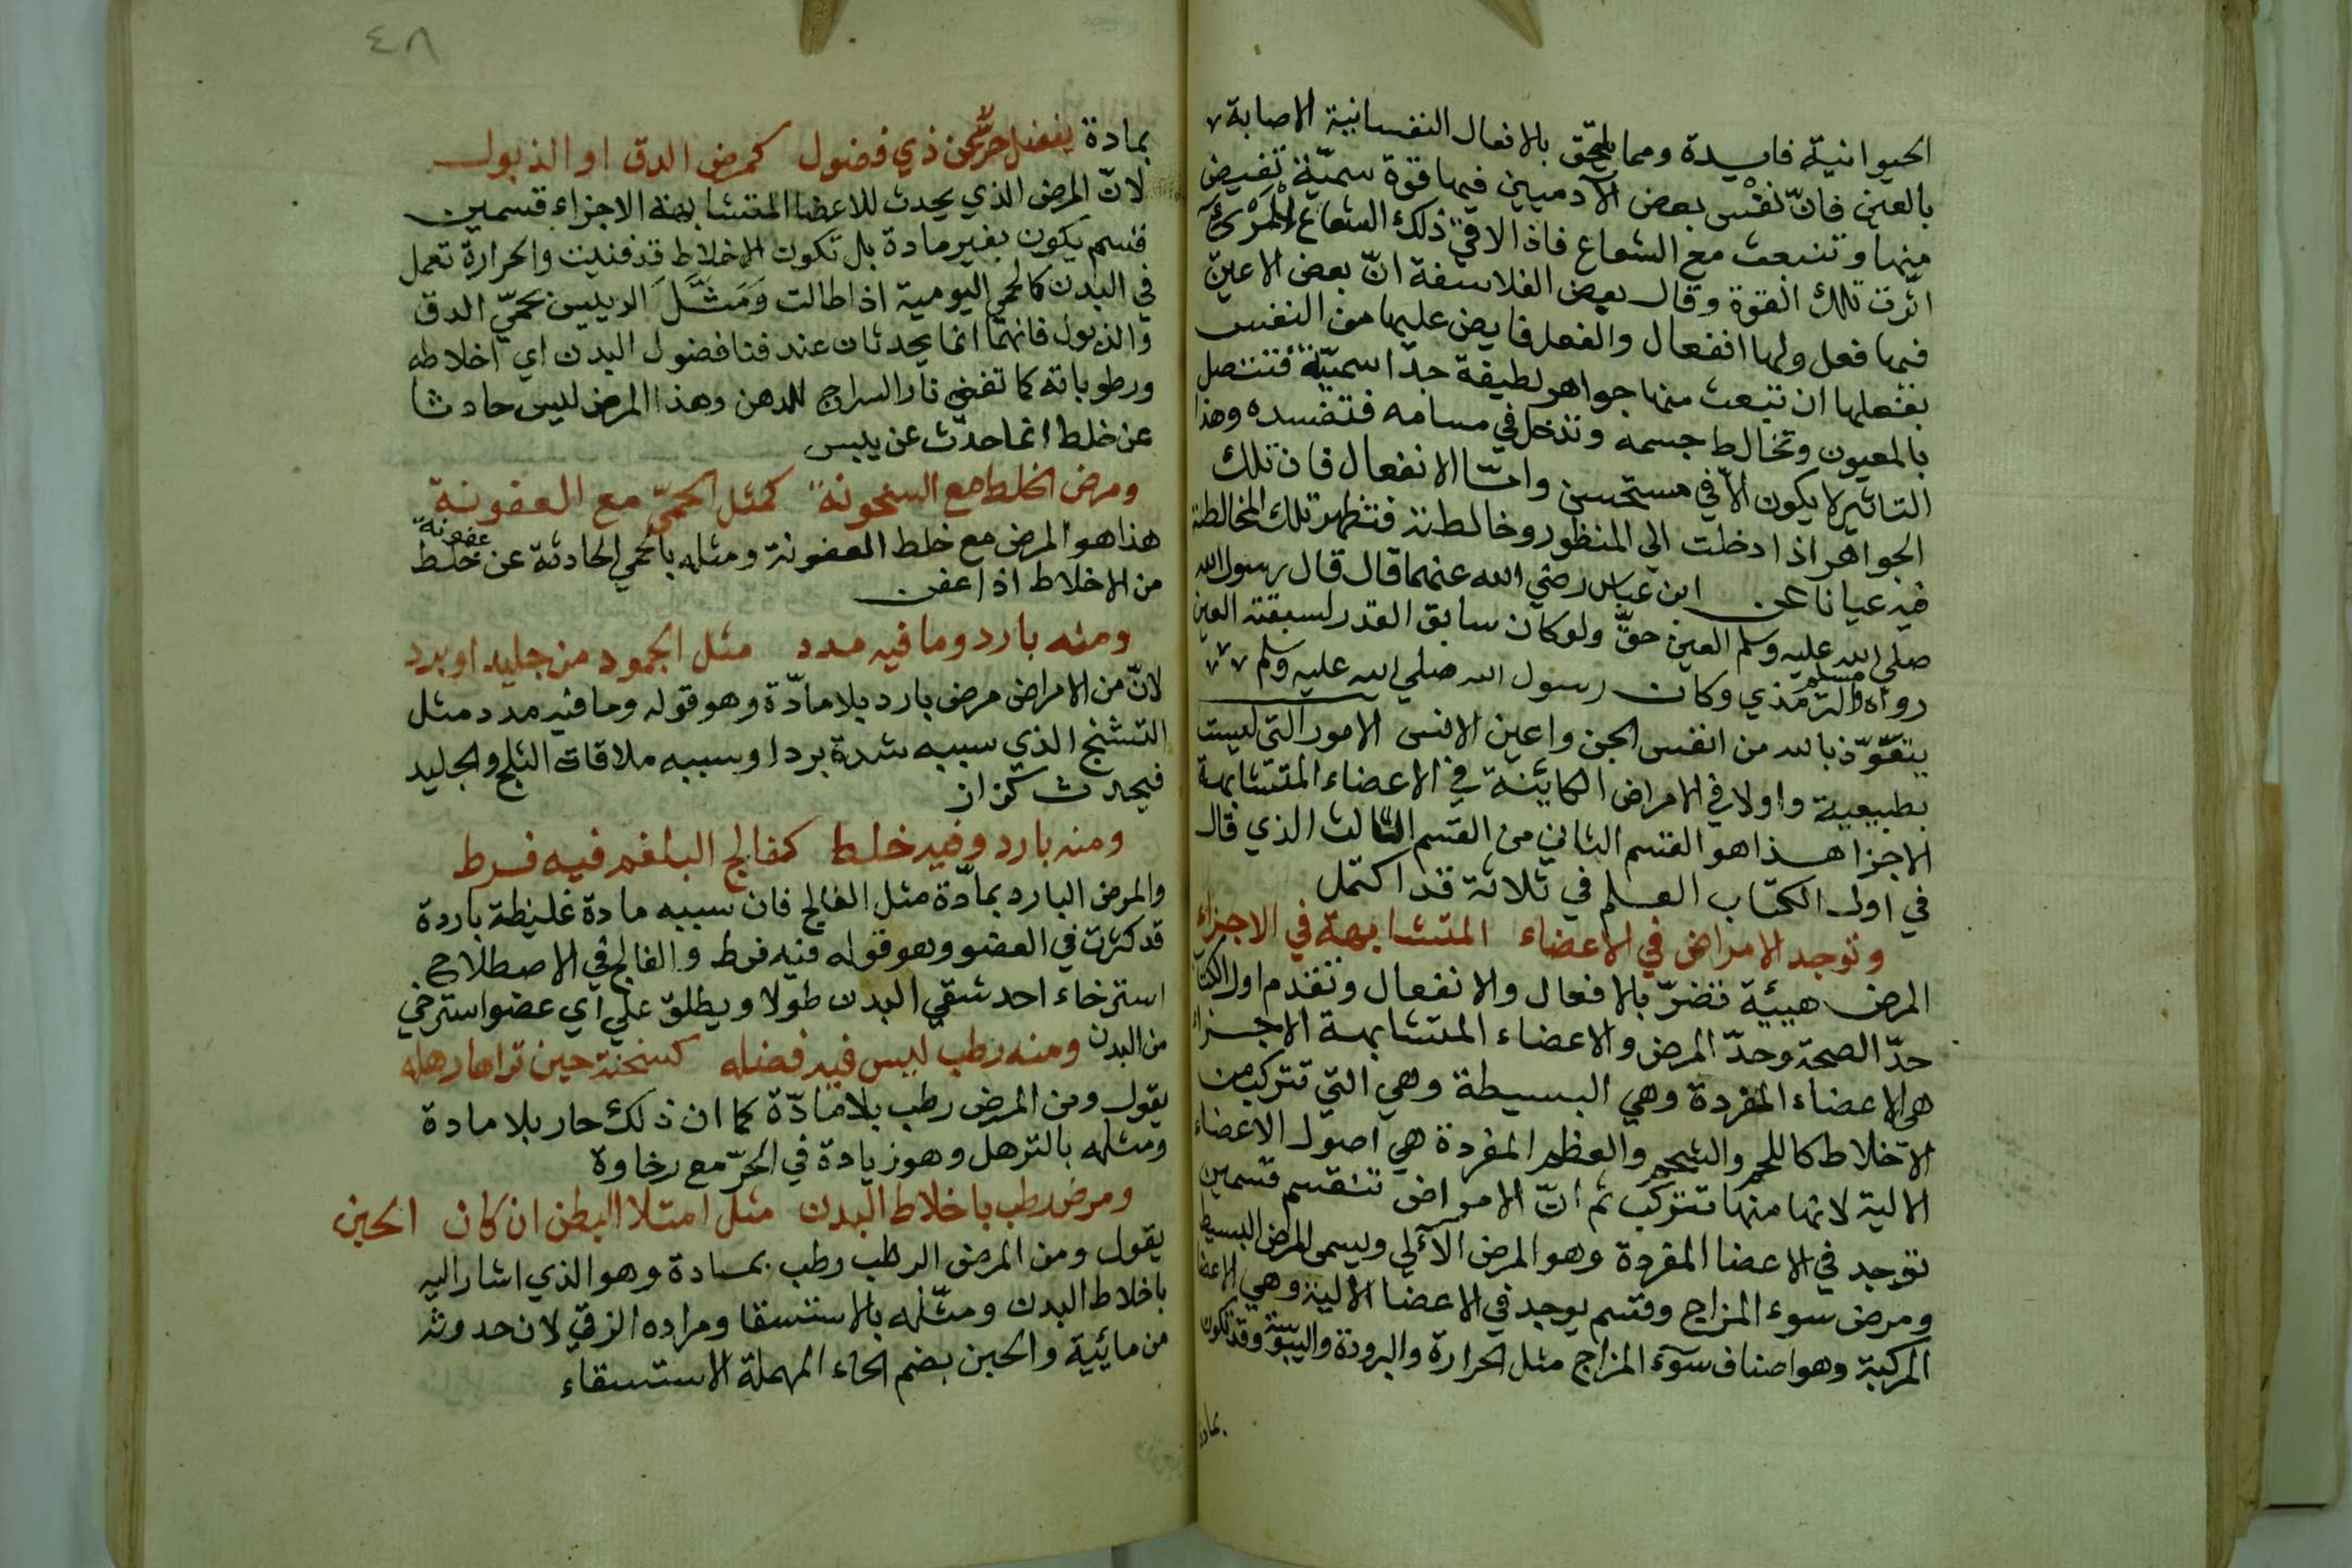 الحيوانية فاسدة ومما يلتحق بالافعال النفسانية الاصابة
بالعين فانّ نفْس بعض الآدميين فيها قوة سميّة تفيض
منها وتنبعث مع الشعاع فاذا لاقي ذلك الشعاع المرئي
اثّرت تلك القوة وقال بعض الفلاسفة انّ بعض الاعين
فيها فعل ولها انفعال والفعل فايض عليها من النفس
بفعلها ان تنبعث منها جواهر لطيفة جدا سميّة فتتصل
بالمعيون وتخالط جسمه وتدخل في مسامه فتفسده وهذا
التاثير لا يكون الاّ في مستحسن وامّا الانفعال فان تلك
الجواهر اذا دخلت الي المنظور وخالطته فتظهر تلك المخالطة
فيه عيانا عن ابن عباس رضي الله عنهما قال قال رسول الله
صلي الله عليه وسلم العين حقّ ولو كان سابق القدر لسبقته العين
رواه مسلم والترمذي وكان رسول الله صلي الله عليه وسلم
يتعوّذ بالله من انفس الجن واعين الانس الامور التي ليست
بطبيعية واولا في الامراض الكاينة في الاعضاء المتشابهة
الاجزا هذا هو القسم الثاني من القسم الثالث الذي قال
في اول الكتاب العلم في ثلاثة قد اكتمل
وتوجد الامراض في الاعضاء المتشابهة في الاجزاء
المرض هيئة تضرّ بالافعال والانفعال وتقدم اول الكتاب
حدّ الصحة وحدّ المرض والاعضاء المتشابهة الاجزاء
هي الاعضاء المفردة وهي البسيطة وهي التي تتركب من
الاخلاط كاللحم والشحم والعظم المفردة هي اصول الاعضاء
الالية لانها منها تتركب ثم انّ الامراض تنقسم قسمين
توجد في الاعضا المفردة وهو المرض الآلي ويسمى المرض البسيط
ومرض سوء المزاج وقسم يوجد في الاعضا الالية وهي الاعضا
المركبة وهو اصناف سوء المزاج مثل الحرارة والبرودة واليبوسة وقد تكون
بمادة
٤٨
بمادة يفعل حرّ عن ذي فضول كمرض الدق او الذبول
لانّ المرض الذي يحدث للاعضا المتشابهة الاجزاء قسمين
قسم يكون بغير مادة بل تكون الاخلاط قد فنيت والحرارة تعمل
في البدن كالحمي اليومية اذا طالت وَمَثَّلَ الرييس بحمّي الدق
والذبول فانهما انما يحدثان عند فنا فضول البدن اي اخلاطه
ورطوباته كما تفني نار السراج للدهن وهذا المرض ليس حادثا
عن خلط انما حدث عن يبس
ومرض الخلط مع السخونة كمثل الحمّي مع العفونة
هذا هو المرض مع خلط العفونة ومثله بالحمي الحادثة عن عفونة خلط
من الاخلاط اذا عفن
ومنه بارد وما فيه مدد مثل الجمود من جليد او برد
لانّ من الامراض مرض بارد بلا مادّة وهو قوله وما فيه مدد مثل
التشنج الذي سببه شدة برد او سببه ملاقات الثلج والجليد
فيحدث كزاز
ومنه بارد وفيه خلط كفالج البلغم فيه فرط
والمرض البارد بمادّة مثل الفالج فان سببه مادة غليظة باردة
قد كثرت في العضو وهو قوله فيه فرط والفالج في الاصطلاح
استرخاء احد شقي البدن طولا ويطلق علي اي عضو استرخي
من البدن ومنه رطب ليس فيه فضله كسخنة حين تراها رهله
يقول ومن المرض رطب بلا مادّة كما ان ذلك حار بلا مادة
ومثله بالترهل وهو زيادة في الحرّ مع رخاوة
ومرض رطب باخلاط البدن مثل امتلا البطن ان كان الحبن
يقول ومن المرض الرطب رطب بمادة وهو الذي اشار اليه
باخلاط البدن ومثّله بالاستسقا ومراده الزقي لان حدوثه
من مائية والحبن بضم الحاء المهملة الاستسقاء